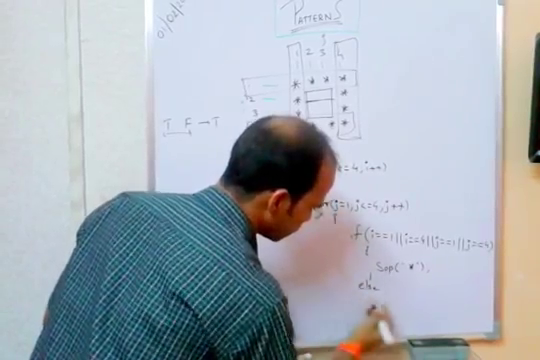 01/02/
PATTERNS
1 2 3 4
* * * *
2
*
3
*
T F → T
* *
=4, i++)
(j=1, j<=4, j++)
if (i==1||i==4||j==1||j==4)
{
Sop("*");
else